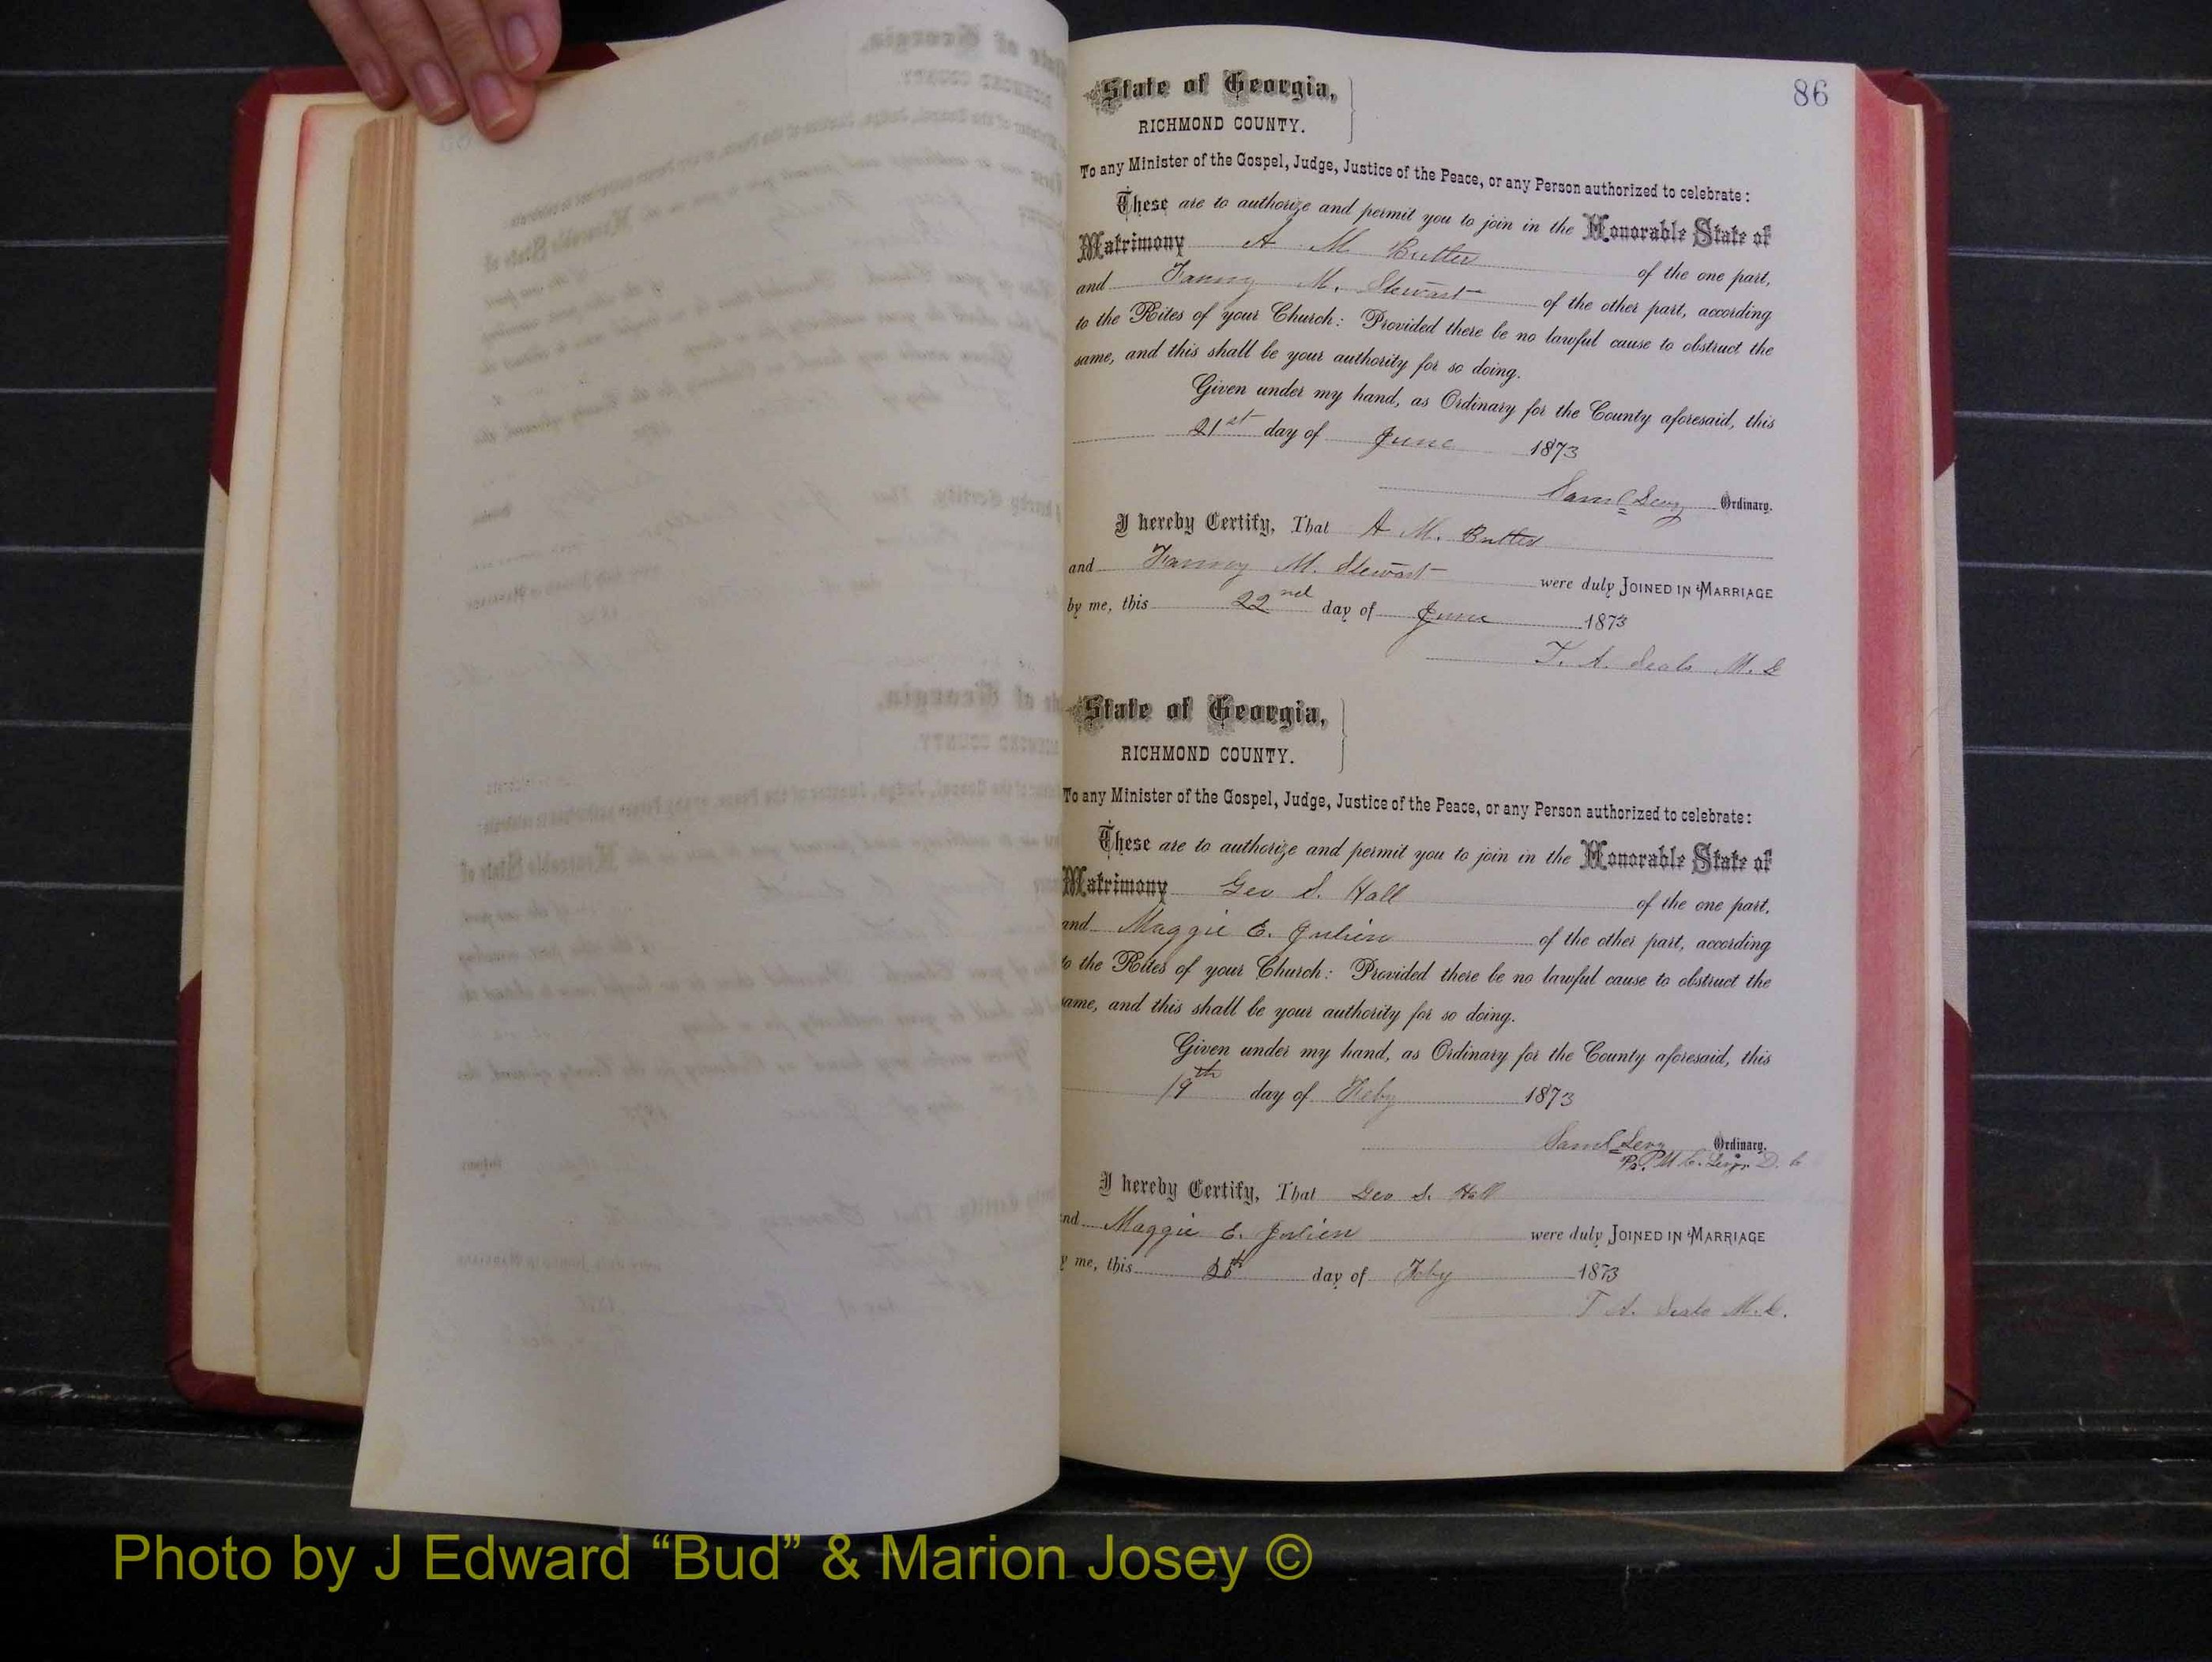 86
State of Georgia,
RICHMOND COUNTY.
To any Minister of the Gospel, Judge, Justice of the Peace, or any Person authorized to celebrate:
These are to authorize and permit you to join in the Honorable State of
Matrimony A M Butler of the one part,
and Fanny M. Stewart of the other part, according
to the Rites of your Church: Provided there be no lawful cause to obstruct the
same, and this shall be your authority for so doing.
Given under my hand, as Ordinary for the County aforesaid, this
21st day of June 1873
Saml Levy Ordinary.
I hereby Certify, That A M. Butler
and Fanny M. Stewart were duly JOINED IN MARRIAGE
by me, this 22nd day of June 1873
T. A. Seals M. G
State of Georgia,
RICHMOND COUNTY.
To any Minister of the Gospel, Judge, Justice of the Peace, or any Person authorized to celebrate:
These are to authorize and permit you to join in the Honorable State of
Matrimony Geo S. Hall of the one part,
and Maggie E. Julien of the other part, according
to the Rites of your Church: Provided there be no lawful cause to obstruct the
same, and this shall be your authority for so doing.
Given under my hand, as Ordinary for the County aforesaid, this
19th day of Feby 1873
Saml Levy Ordinary.
Levy D. C
I hereby Certify, That Geo S. Hall
and Maggie E. Julien were duly JOINED IN MARRIAGE
by me, this day of Feby 1873
T A. Seals M. G.
Photo by J Edward “Bud” & Marion Josey ©